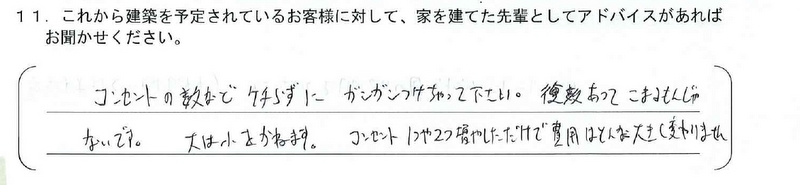 11．これから建築を予定されているお客様に対して、家を建てた先輩としてアドバイスがあれば
お聞かせください。
コンセントの数など ケチらずに ガンガンつけちゃって下さい。 複数あって こまるもんじゃ
ないです。 大は小をかねます。 コンセント1つや2つ増やしただけで費用はそんな大きく変わりません